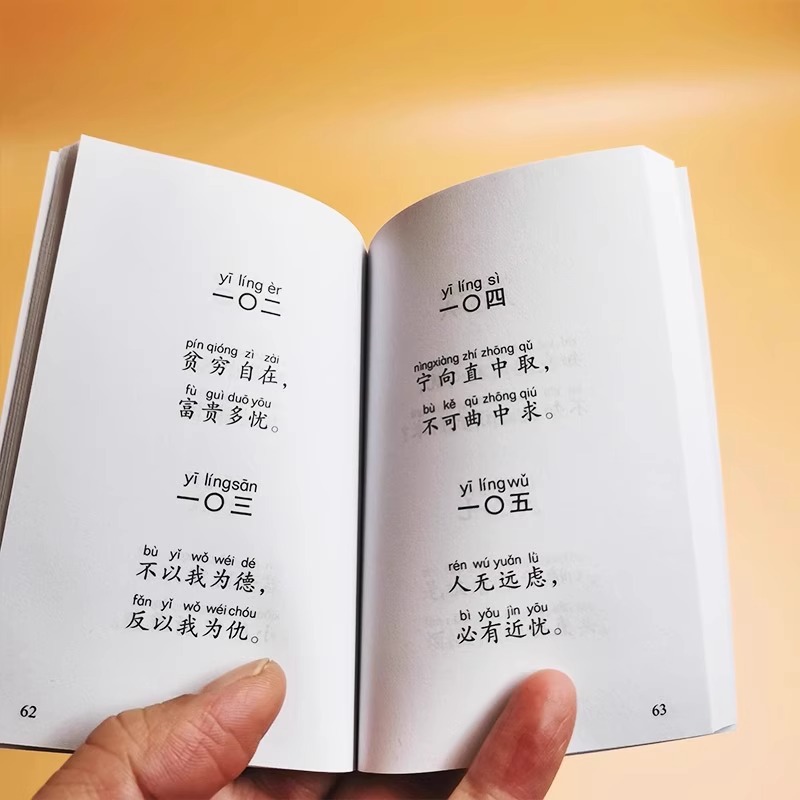 yī líng èr
一〇二
pín qióng zì zài
贫穷自在，
fù guì duō yōu
富贵多忧。
yī líng sān
一〇三
bù yǐ wǒ wéi dé
不以我为德，
fǎn yǐ wǒ wéi chóu
反以我为仇。
62
yī líng sì
一〇四
nìng xiàng zhí zhōng qǔ
宁向直中取，
bù kě qū zhōng qiú
不可曲中求。
yī líng wǔ
一〇五
rén wú yuǎn lǜ
人无远虑，
bì yǒu jìn yōu
必有近忧。
63